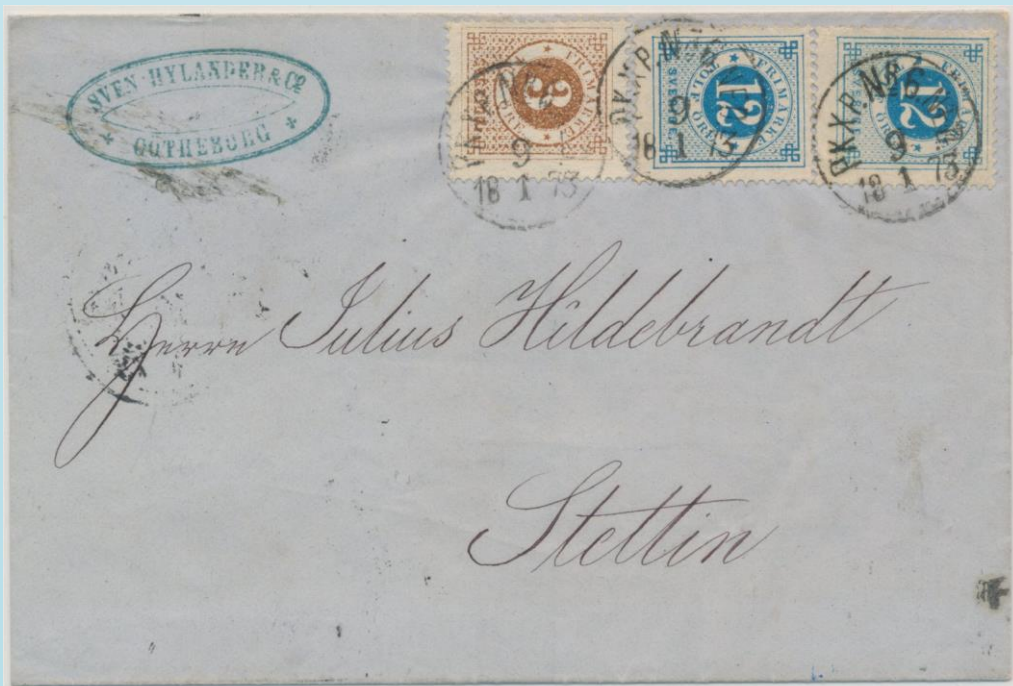 SVEN HYLANDER & Co
GOTHEBORG
FRIMÆRKE
3
FRIMÆRKE
TOLF ÖRE
SVERIGE
12
12
PKXP. Nr 6
9
18 1 73
PKXP. Nr 6
9
18 1 73
PKXP. Nr 6
9
18 1 73
Herrn Julius Hildebrandt
Stettin